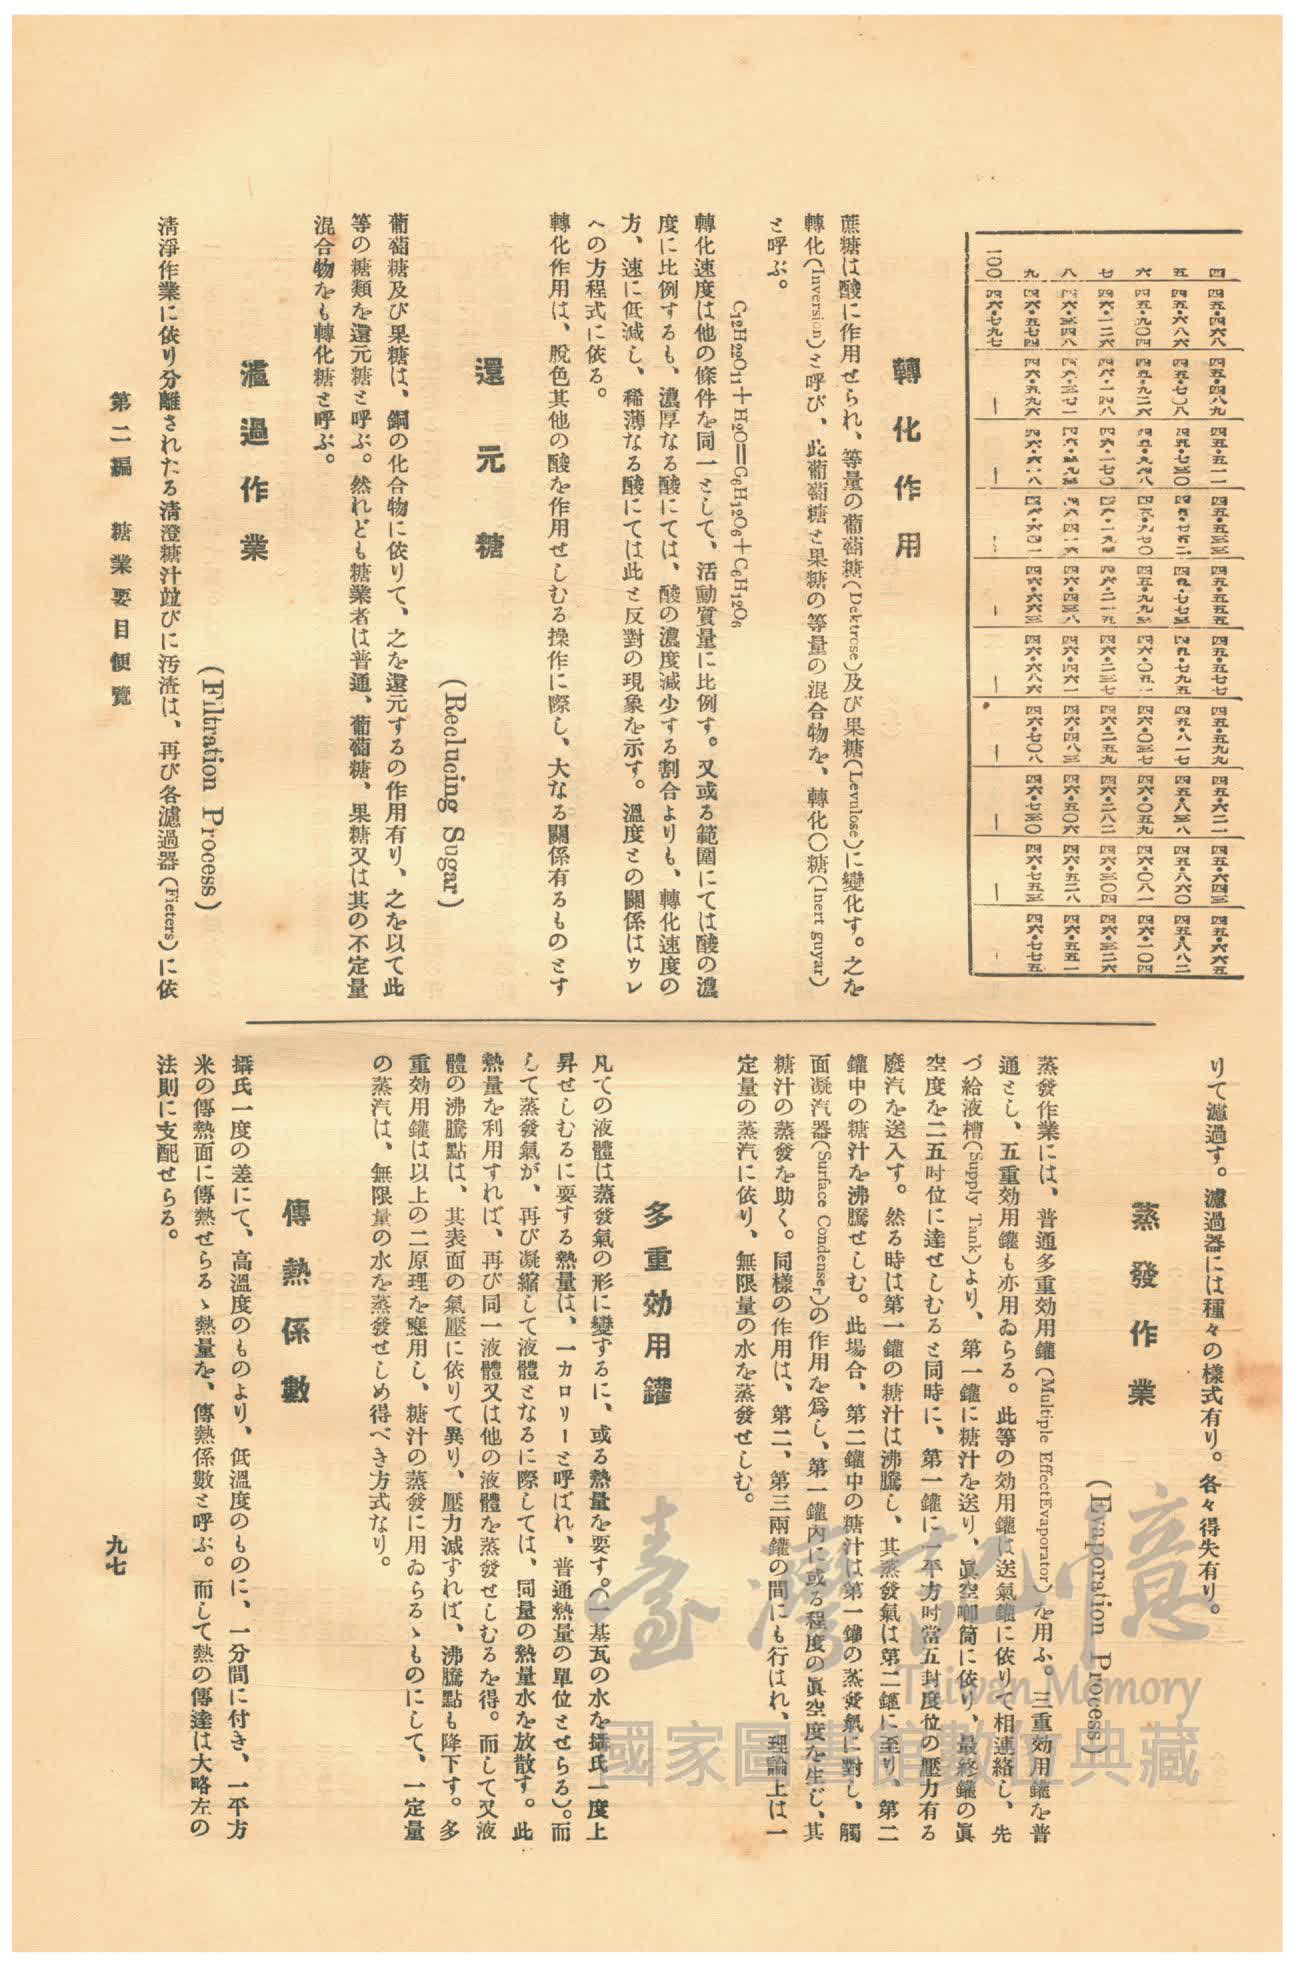 四 四五・四六八 四五・四八九 四五・五一一 四五・五三三 四五・五五五 四五・五七七 四五・五九九 四五・六二一 四五・六四三 四五・六六五
五 四五・六八六 四五・七〇八 四五・七三〇 四五・七五二 四五・七七三 四五・七九五 四五・八一七 四五・八三八 四五・八六〇 四五・八八二
六 四五・九〇四 四五・九二六 四五・九四八 四五・九七〇 四五・九九三 四六・〇三七 四六・〇五九 四六・〇八一 四六・一〇四
七 四六・一二六 四六・一四八 四六・一七〇 四六・一九三 四六・二一五 四六・二三七 四六・二五九 四六・二八二 四六・三〇四 四六・三二六
八 四六・三四八 四六・三七一 四六・三九三 四六・四一六 四六・四三八 四六・四六一 四六・四八三 四六・五〇六 四六・五二八 四六・五五一
九 四六・五七四 四六・五九六 四六・六一八 四六・六四一 四六・六六三 四六・六八六 四六・七〇八 四六・七三〇 四六・七五三 四六・七七五
一〇〇 四六・七九七
轉化作用
蔗糖は酸に作用せられ、等量の葡萄糖(Dektrose)及び果糖(Levulose)に變化す。之を
轉化(Inversion)と呼び、此葡萄糖と果糖の等量の混合物を、轉化〇糖(Inert guyar)
と呼ぶ。
C12H22O11＋H2O＝C6H12O6＋C6H12O6
轉化速度は他の條件を同一として、活動質量に比例す。又或る範圍にては酸の濃
度に比例するも、濃厚なる酸にては、酸の濃度減少する割合よりも、轉化速度の
方、速に低減し、稀薄なる酸にては此と反對の現象を示す。溫度との關係はウレ
への方程式に依る。
轉化作用は、脫色其他の酸を作用せしむる操作に際し、大なる關係有るものとす
還元糖
(Reclucing Sugar)
葡萄糖及び果糖は、銅の化合物に依りて、之を還元するの作用有り、之を以て此
等の糖類を還元糖と呼ぶ。然れども糖業者は普通、葡萄糖、果糖又は其の不定量
混合物をも轉化糖と呼ぶ。
濾過作業
(Filtration Process)
淸淨作業に依り分離されたる淸澄糖汁竝びに汚渣は、再び各濾過器(Fieters)に依
第二編 糖業要目便覽
りて濾過す。濾過器には種々の樣式有り。各々得失有り。
蒸發作業
(Evaporation Process)
蒸發作業には、普通多重効用罐(Multiple EffectEvaporator)を用ふ。三重効用罐を普
通とし、五重効用罐も亦用ゐらる。此等の効用罐は送氣罐に依りて相連絡し、先
づ給液槽(Supply Tank)より、第一罐に糖汁を送り、眞空唧筒に依り、最終罐の眞
空度を二五吋位に達せしむると同時に、第一罐に一平方吋當五封度位の壓力有る
廢汽を送入す。然る時は第一罐の糖汁は沸騰し、其蒸發氣は第二罐に至り、第二
罐中の糖汁を沸騰せしむ。此場合、第二罐中の糖汁は第一罐の蒸發氣に對し、觸
面凝汽器(Surface Condenser)の作用を爲し、第一罐內に或る程度の眞空度を生じ、其
糖汁の蒸發を助く。同樣の作用は、第二、第三兩罐の間にも行はれ、理論上は一
定量の蒸汽に依り、無限量の水を蒸發せしむ。
多重効用罐
凡ての液體は蒸發氣の形に變するに、或る熱量を要す。(一基瓦の水を攝氏一度上
昇せしむるに要する熱量は、一カロリーと呼ばれ、普通熱量の單位とせらる)。而
して蒸發氣が、再び凝縮して液體となるに際しては、同量の熱量水を放散す。此
熱量を利用すれば、再び同一液體又は他の液體を蒸發せしむるを得。而して又液
體の沸騰點は、其表面の氣壓に依りて異り、壓力減ずれば、沸騰點も降下す。多
重効用罐は以上の二原理を應用し、糖汁の蒸發に用ゐらるゝものにして、一定量
の蒸汽は、無限量の水を蒸發せしめ得べき方式なり。
傳熱係數
攝氏一度の差にて、高溫度のものより、低溫度のものに、一分間に付き、一平方
米の傳熱面に傳熱せらるゝ熱量を、傳熱係數と呼ぶ。而して熱の傳達は大略左の
法則に支配せらる。
九七
臺灣記憶
Taiwan Memory
國家圖書館數位典藏